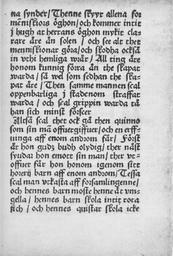 na synder / Thenne skyr allena for
menniskors öghon / och kommer intit
j hugh at herrans öghon mykit clas
rare äre än solen / och see alt thet
menniskionar göra / och skodha också
in vthi hemliga wrår / All ting äre
honom kunnig förra än the skapat
warda / så wel som sedhan the skas
pat äre / Then samme mannen scal
oppenbarliga j stadenom straffat
warda / och scal grippin warda tå
han sich minst förseer
Alleså scal thet ock gå then quinno
som sin mä offuergiffuer / och en erffs
ninga aff enom androm får / Först
är hon gudz budh olydig / ther näst
syndar hon emot sin man / ther vts
offuer får hon honom igenom sitt
horerij barn aff enom androm / Tessa
scal man vtkasta aff församlingenne /
och hennes barn moste henne åt vms
gella / hennes barn skola intit rota
sich / och hennes quistar skola icke